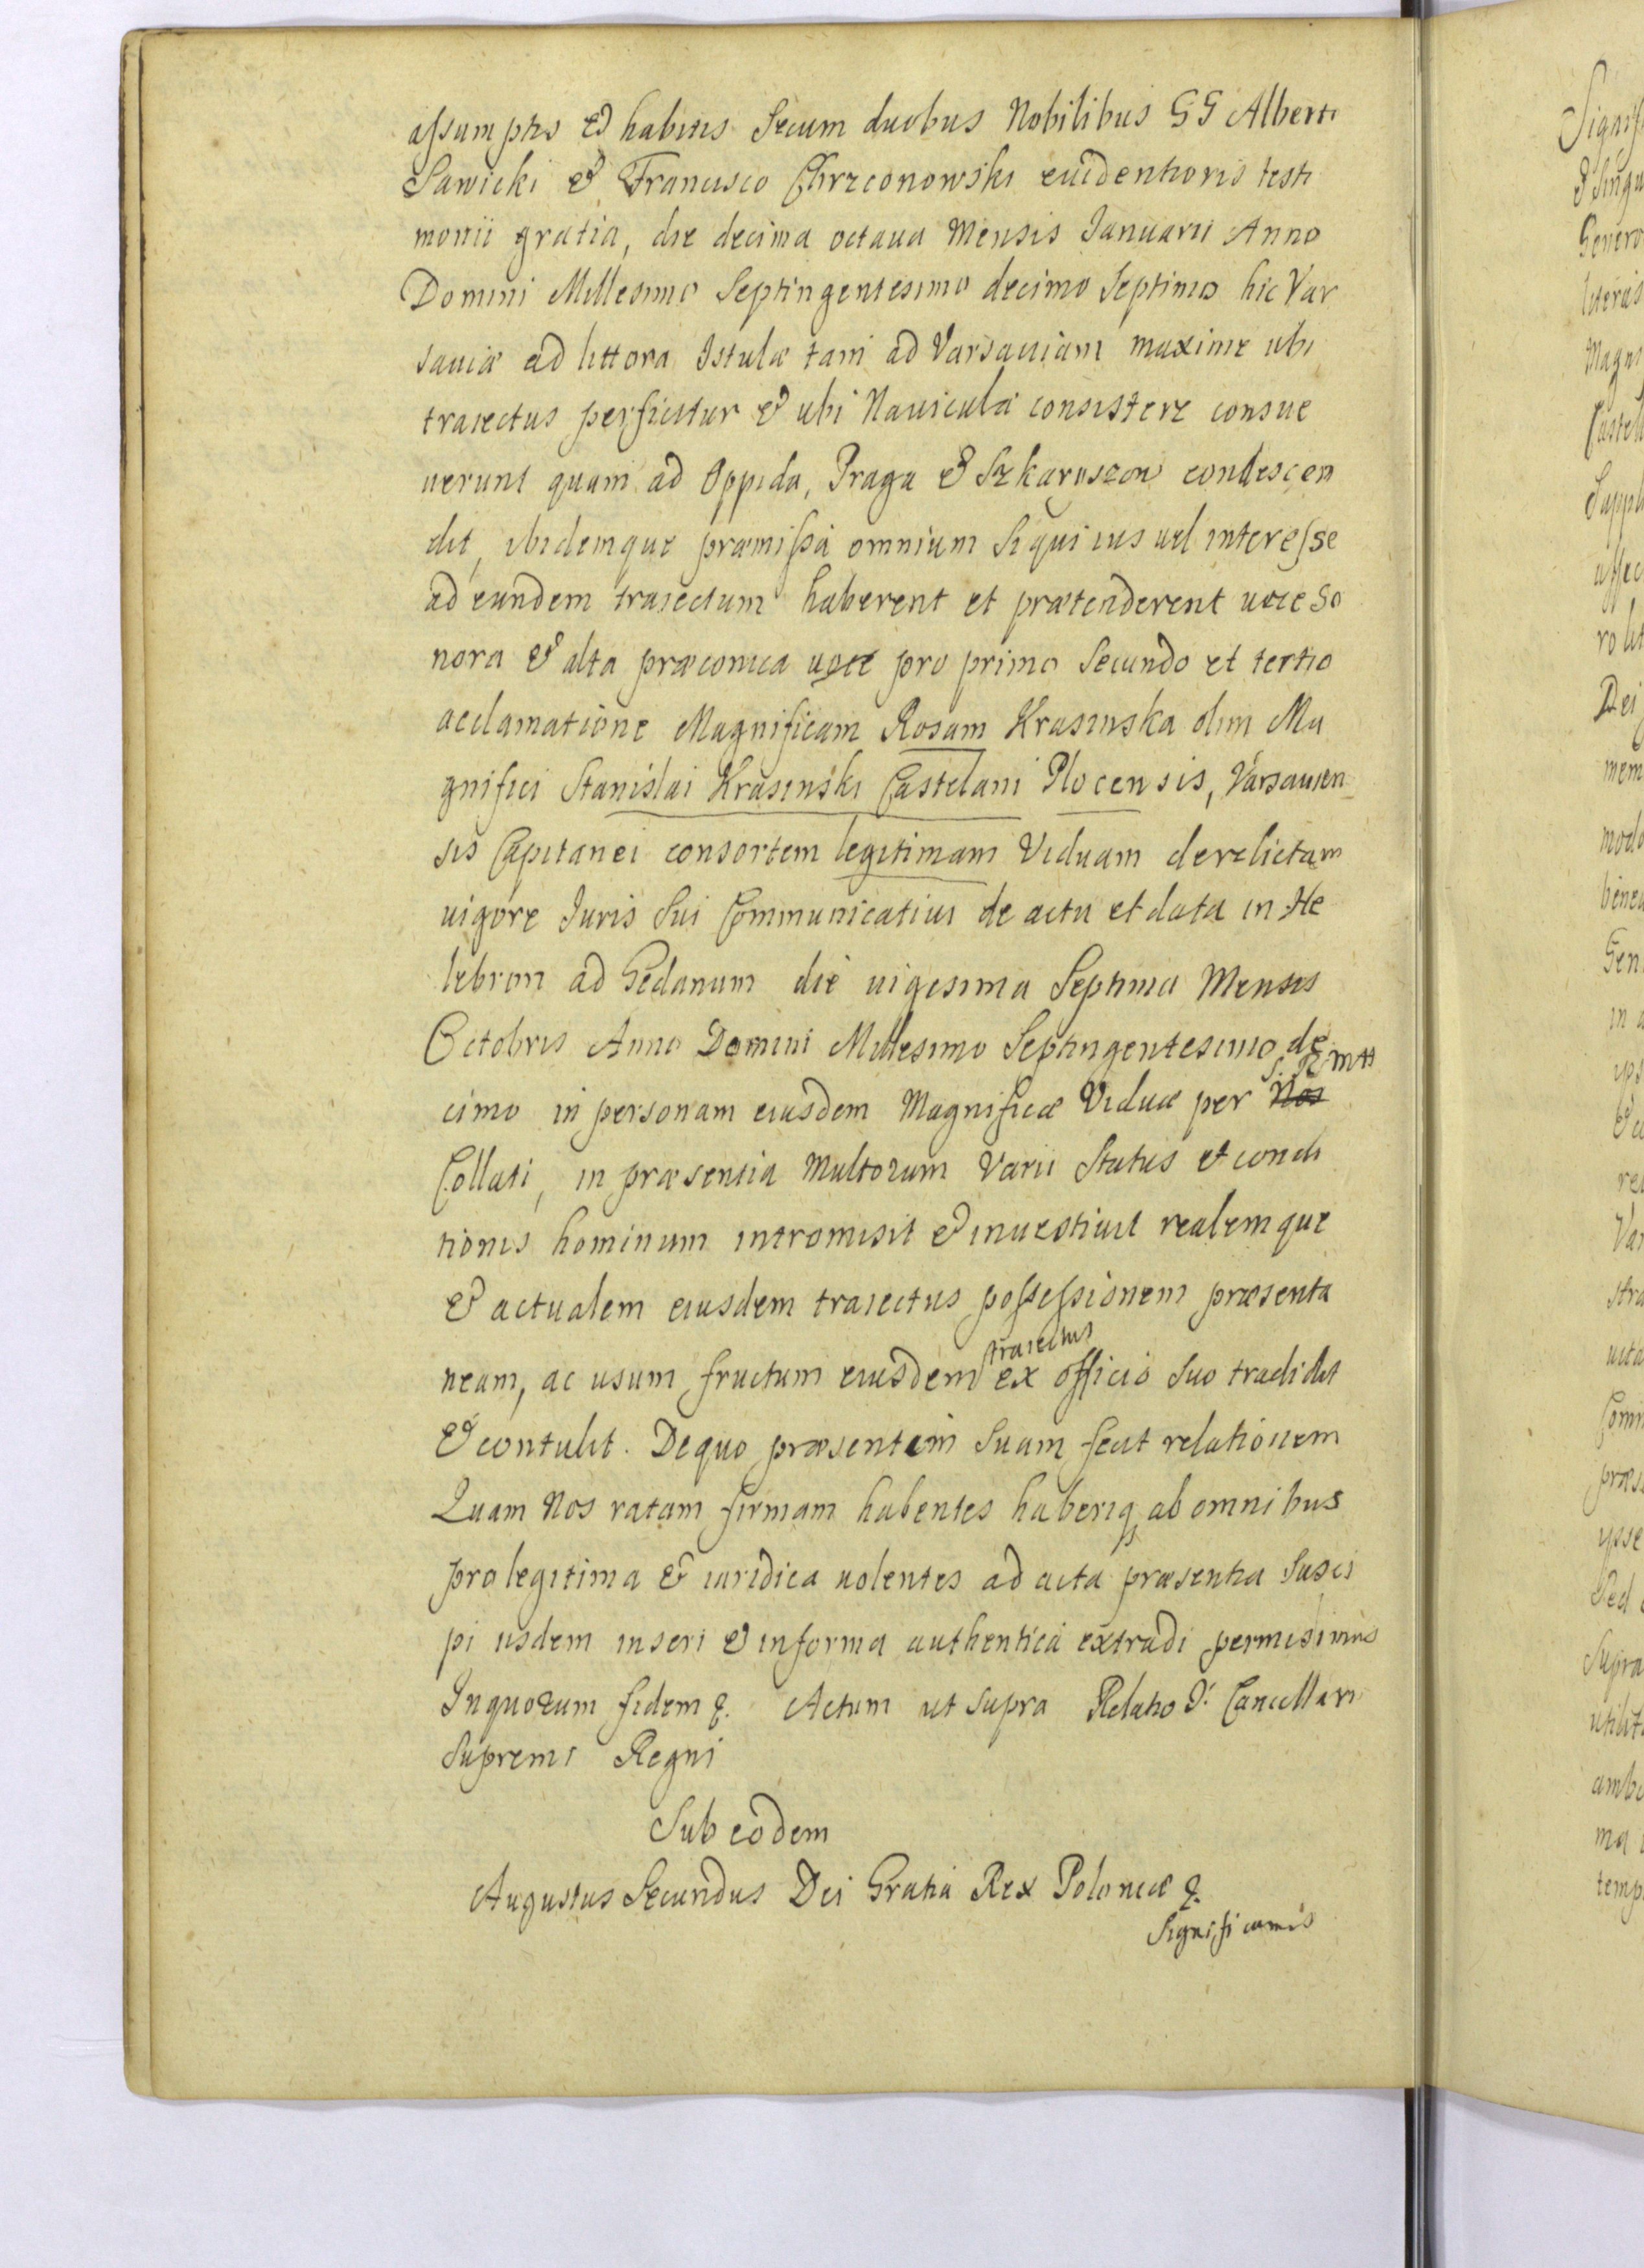 assumptis & habitis Secum duobus Nobilibus GG Alberti
Sawicki & Francisco Chrzconowski euidentioris testi
monii gratia, die decima octaua Mensis Januarii Anno
Domini Millesimo Septingentesimo decimo Septimo hic Var
sauiæ ad littora Istulæ tam ad Varsauiam maxime ubi
traiectus perficitur & ubi Nauiculæ consistere consue
uerunt quam ad Oppida, Praga & Szkaruszow condescen
dit, ibidemque præmissa omnium si qui ius uel interesse
ad eundem traiectum haberent et prætenderent uoce So
nora & alta præconica uoce pro primo Secundo et tertio
acclamatione Magnificam Rosam Krasinska olim Ma
gnifici Stanislai Krasinski Castelani Plocensis, Varsauien
sis Capitanei consortem legitimam Viduam derelictam
uigore Juris Sui Communicatiui de actu et data in He
lebron ad Gedanum die uigesima Septima Mensis
Octobris Anno Domini Millesimo Septingentesimo de
cimo in personam eiusdem Magnificæ Viduæ per Nos S. R. Mtt
Collati, in præsentia Multorum Varii Status et condi
tionis hominum intromisit & inuestiuit realemque
& actualem eiusdem traiectus possessionem præsenta
neam, ac usum fructum eiusdem traiectus ex officio Suo tradidit
& contulit. De quo præsentem Suam fecit relationem
Quam Nos ratam firmam habentes haberiq; ab omnibus
pro legitima & iuridica uolentes ad acta præsentia Susci
pi iisdem inseri & in forma authentica extradi permisimus
In quorum fidem &. Actum ut supra Relatio I. Cancellarii
Supremi Regni
Sub eodem
Augustus Secundus Dei Gratia Rex Poloniæ &.
Significamus